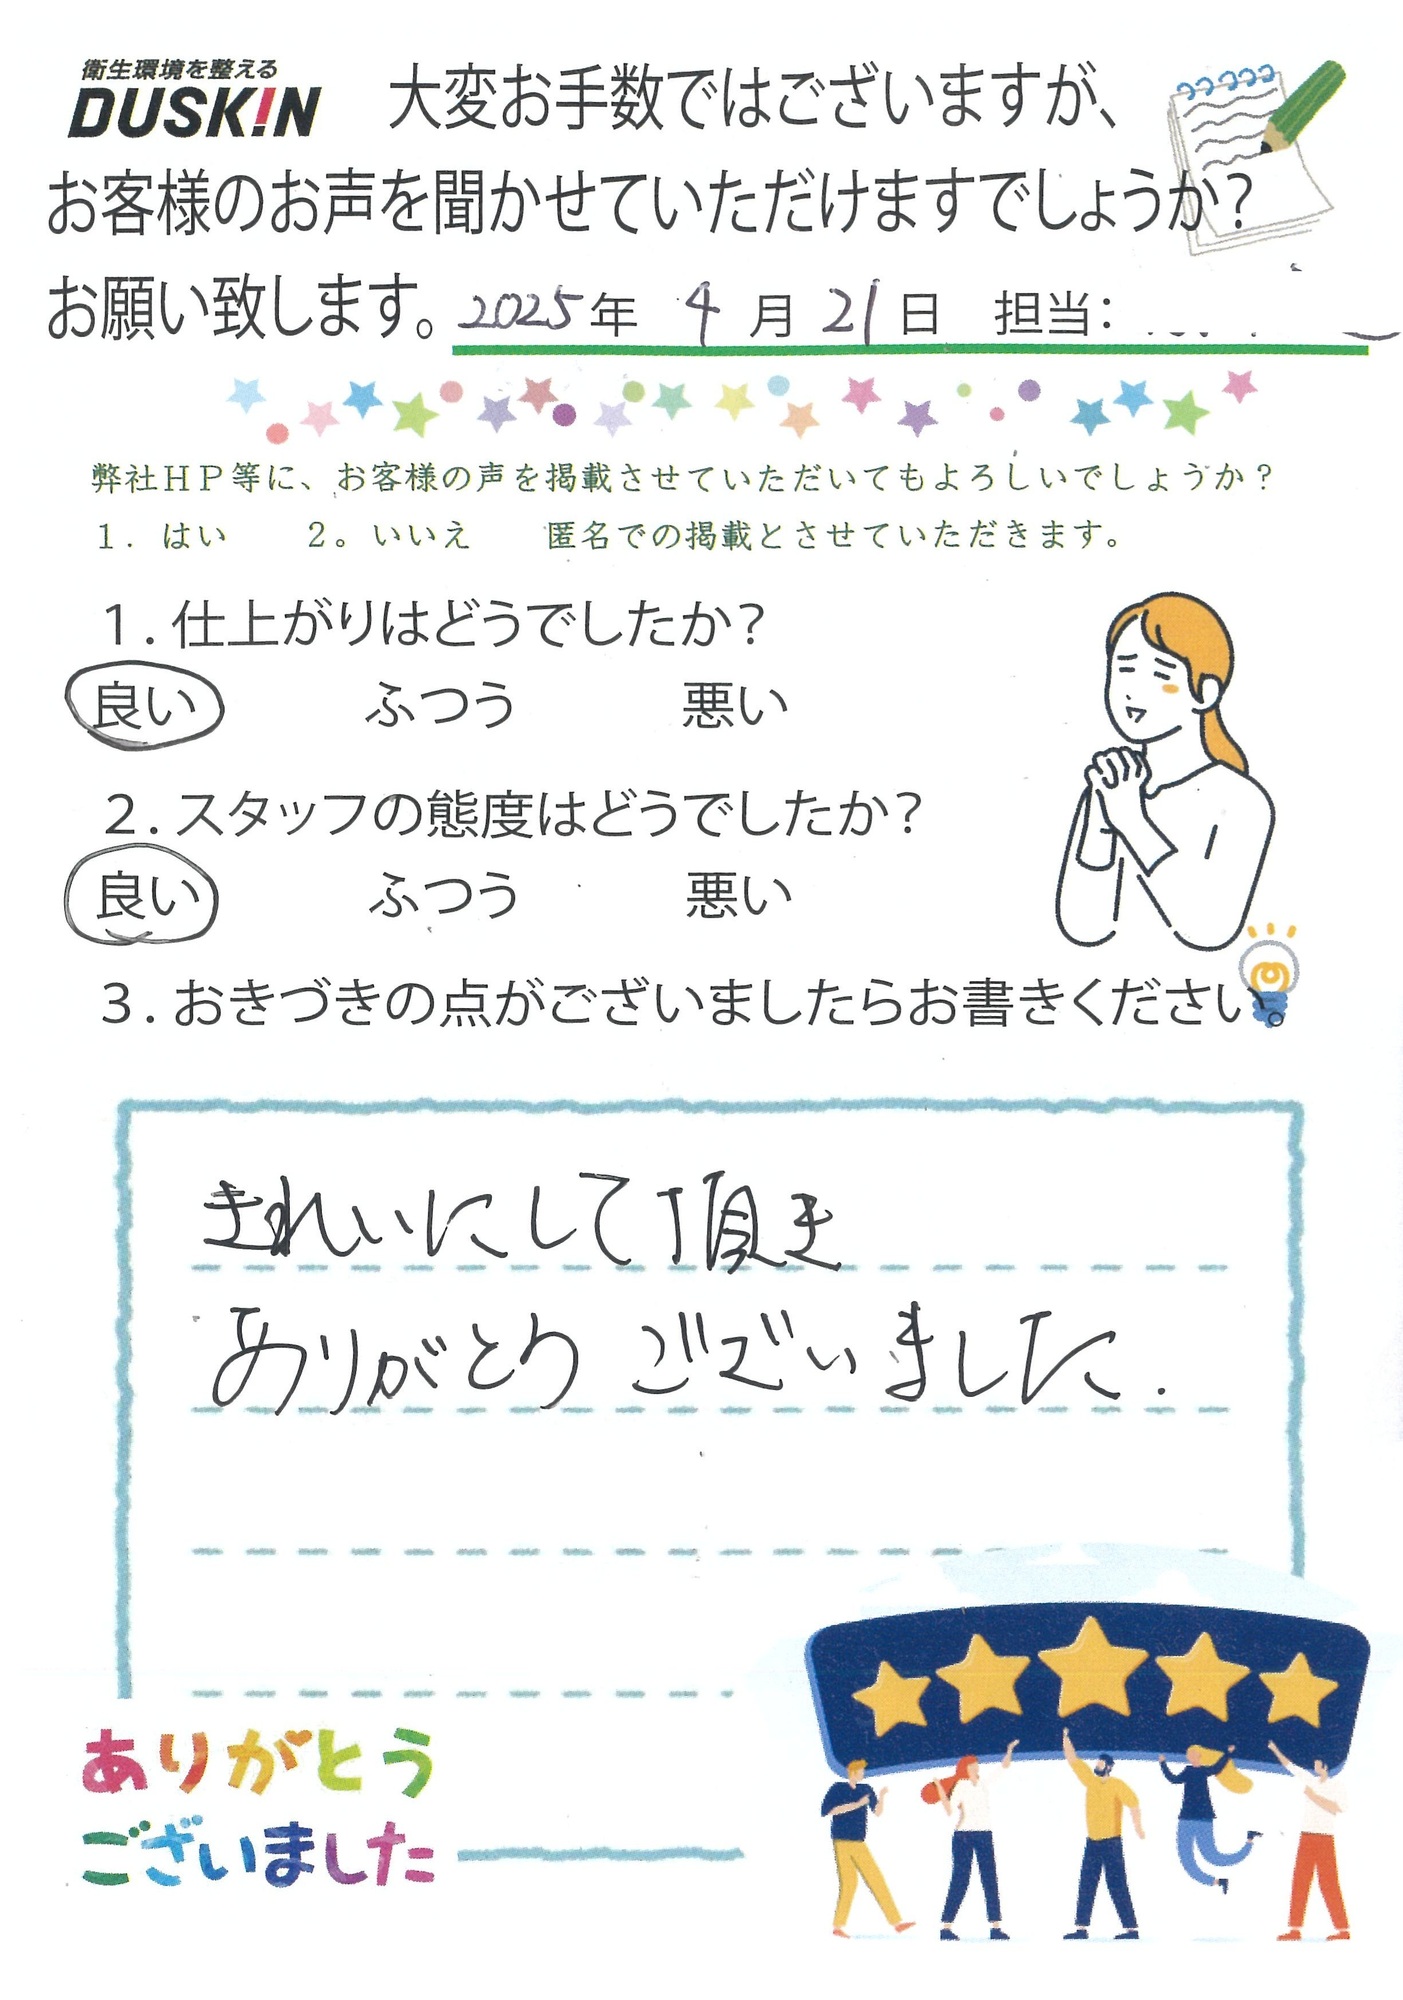 衛生環境を整える
DUSKIN 大変お手数ではございますが、
お客様のお声を聞かせていただけますでしょうか？
お願い致します。 2025年 4月21日 担当：
弊社ＨＰ等に、お客様の声を掲載させていただいてもよろしいでしょうか？
１．はい ２。いいえ 匿名での掲載とさせていただきます。
１．仕上がりはどうでしたか？
良い ふつう 悪い
２．スタッフの態度はどうでしたか？
良い ふつう 悪い
３．おきづきの点がございましたらお書きください。
きれいにして頂き
ありがとうございました.
ありがとう
ございました